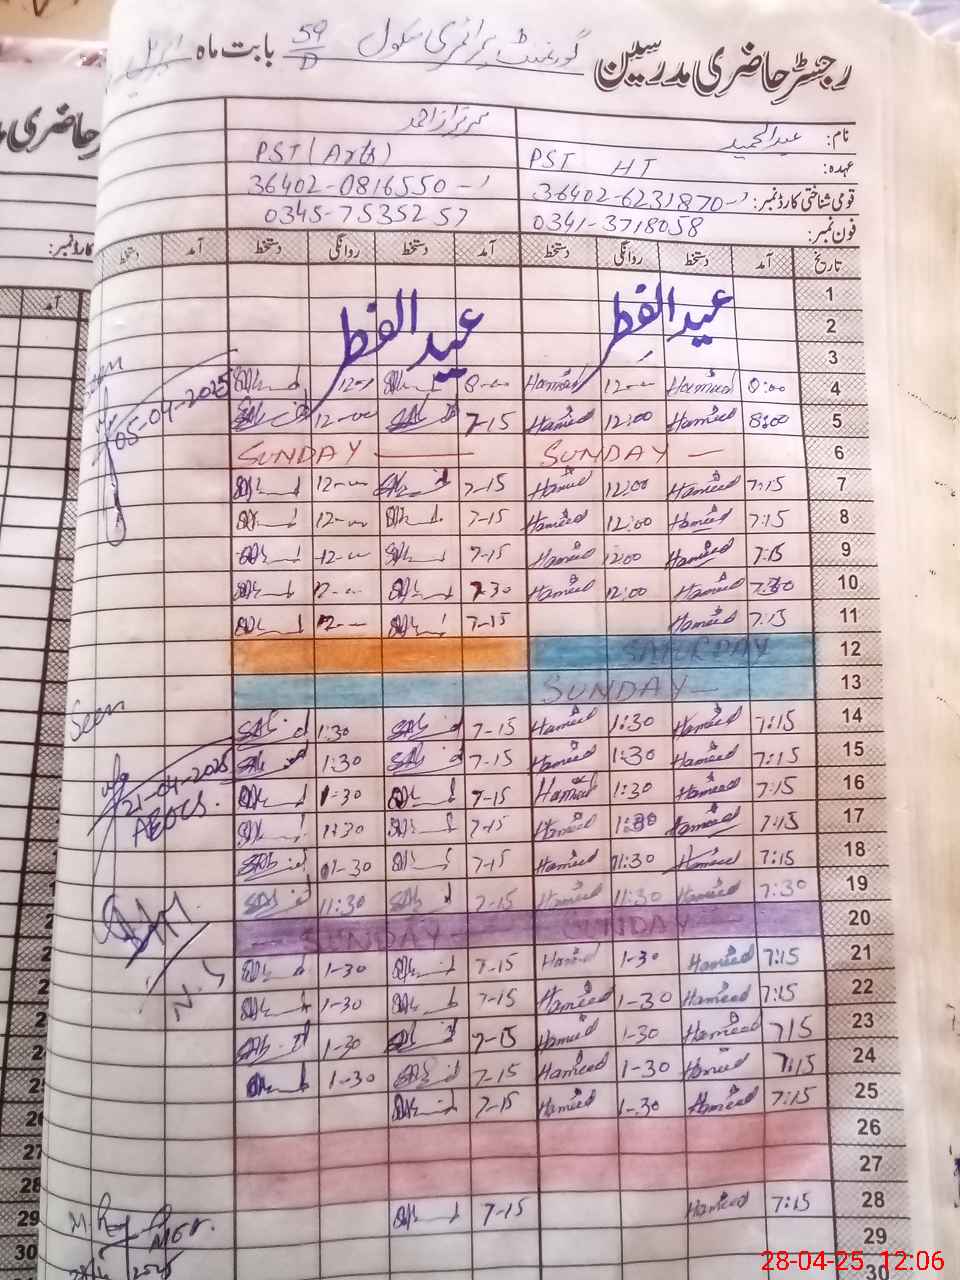 رجسٹر حاضری مدرسین گورنمنٹ پرائمری سکول 59/D بابت ماہ اپریل
نام: عبدالحمید
عہدہ: PST HT PST (Arts)
قومی شناختی کارڈ نمبر: 36402-6231870-1 36402-0816550-1
فون نمبر: 0341-3718058 0345-7535257
تاریخ آمد دستخط روانگی دستخط آمد دستخط روانگی دستخط آمد دستخط
1
2 عید الفطر عید الفطر
3
4 8:00 Hameed 12-00 Hameed 8-00 12-00
5 8:00 Hameed 12:00 Hameed 7-15 12-00
6 SUNDAY SUNDAY
7 7:15 Hameed 12:00 Hameed 7-15 12-00
8 7:15 Hameed 12:00 Hameed 7-15 12-00
9 7:15 Hameed 12:00 Hameed 7-15 12-00
10 7:30 Hameed 12:00 Hameed 7-30 12-00
11 7:15 Hameed 7-15 12-00
12 SATURDAY
13 SUNDAY
14 7:15 Hameed 1:30 Hameed 7-15 1:30
15 7:15 Hameed 1:30 Hameed 7-15 1:30
16 7:15 Hameed 1:30 Hameed 7-15 1-30
17 7:15 Hameed 1:30 Hameed 7-15 1:30
18 7:15 Hameed 11:30 Hameed 7-15 11-30
19 7:30 Hameed 11:30 Hameed 7-15 11:30
20 SUNDAY SUNDAY
21 7:15 Hameed 1-30 Hameed 7-15 1-30
22 7:15 Hameed 1-30 Hameed 7-15 1-30
23 715 Hameed 1-30 Hameed 7-15 1-30
24 7:15 Hameed 1-30 Hameed 7-15 1-30
25 7:15 Hameed 1-30 Hameed 7-15
26
27
28 7:15 Hameed 7-15
29
30
Seen
05-04-2025
Seen
21-04-2025
حاضری
کارڈ نمبر:
آمد
26
27
28
29
30
28-04-25 12:06